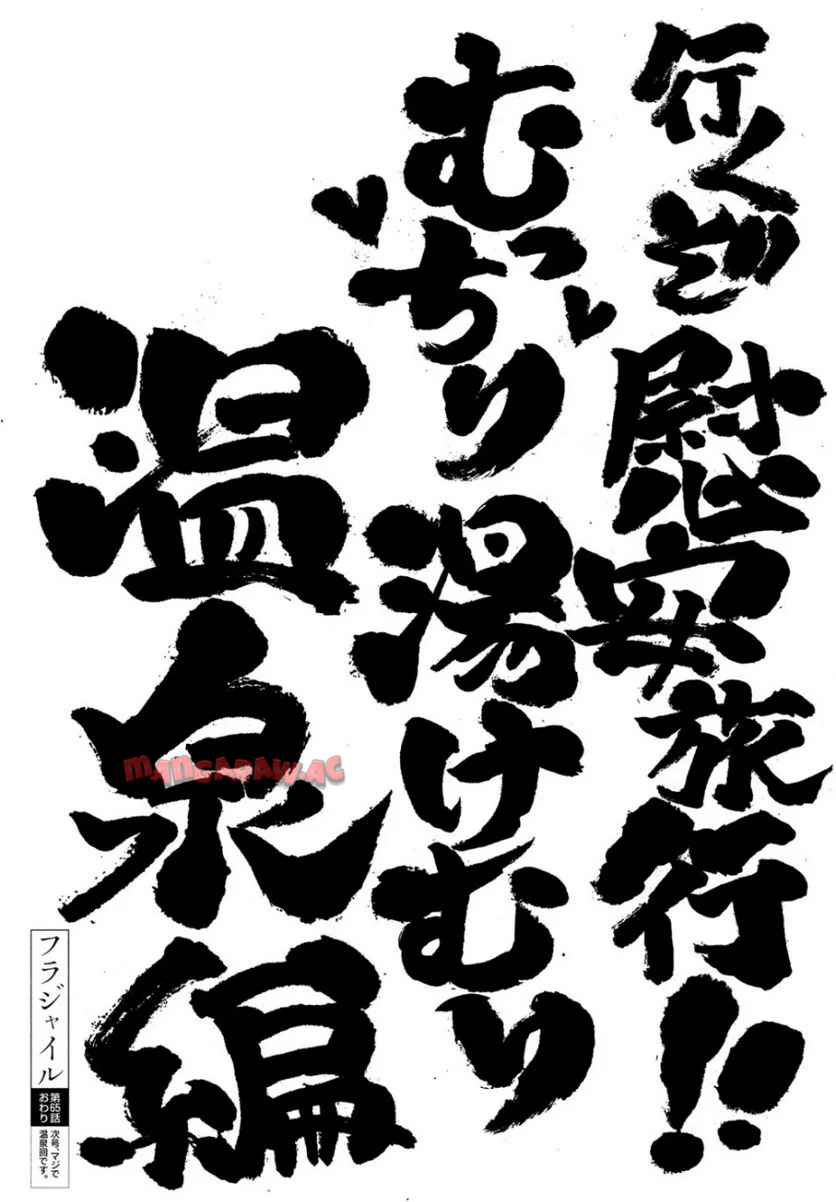 行くぞ慰安旅行!!
むっちり♥湯けむり♥
温泉編
フラジャイル
第65話
おわり
次号、マジで
温泉回です。
MANGARAW.AC